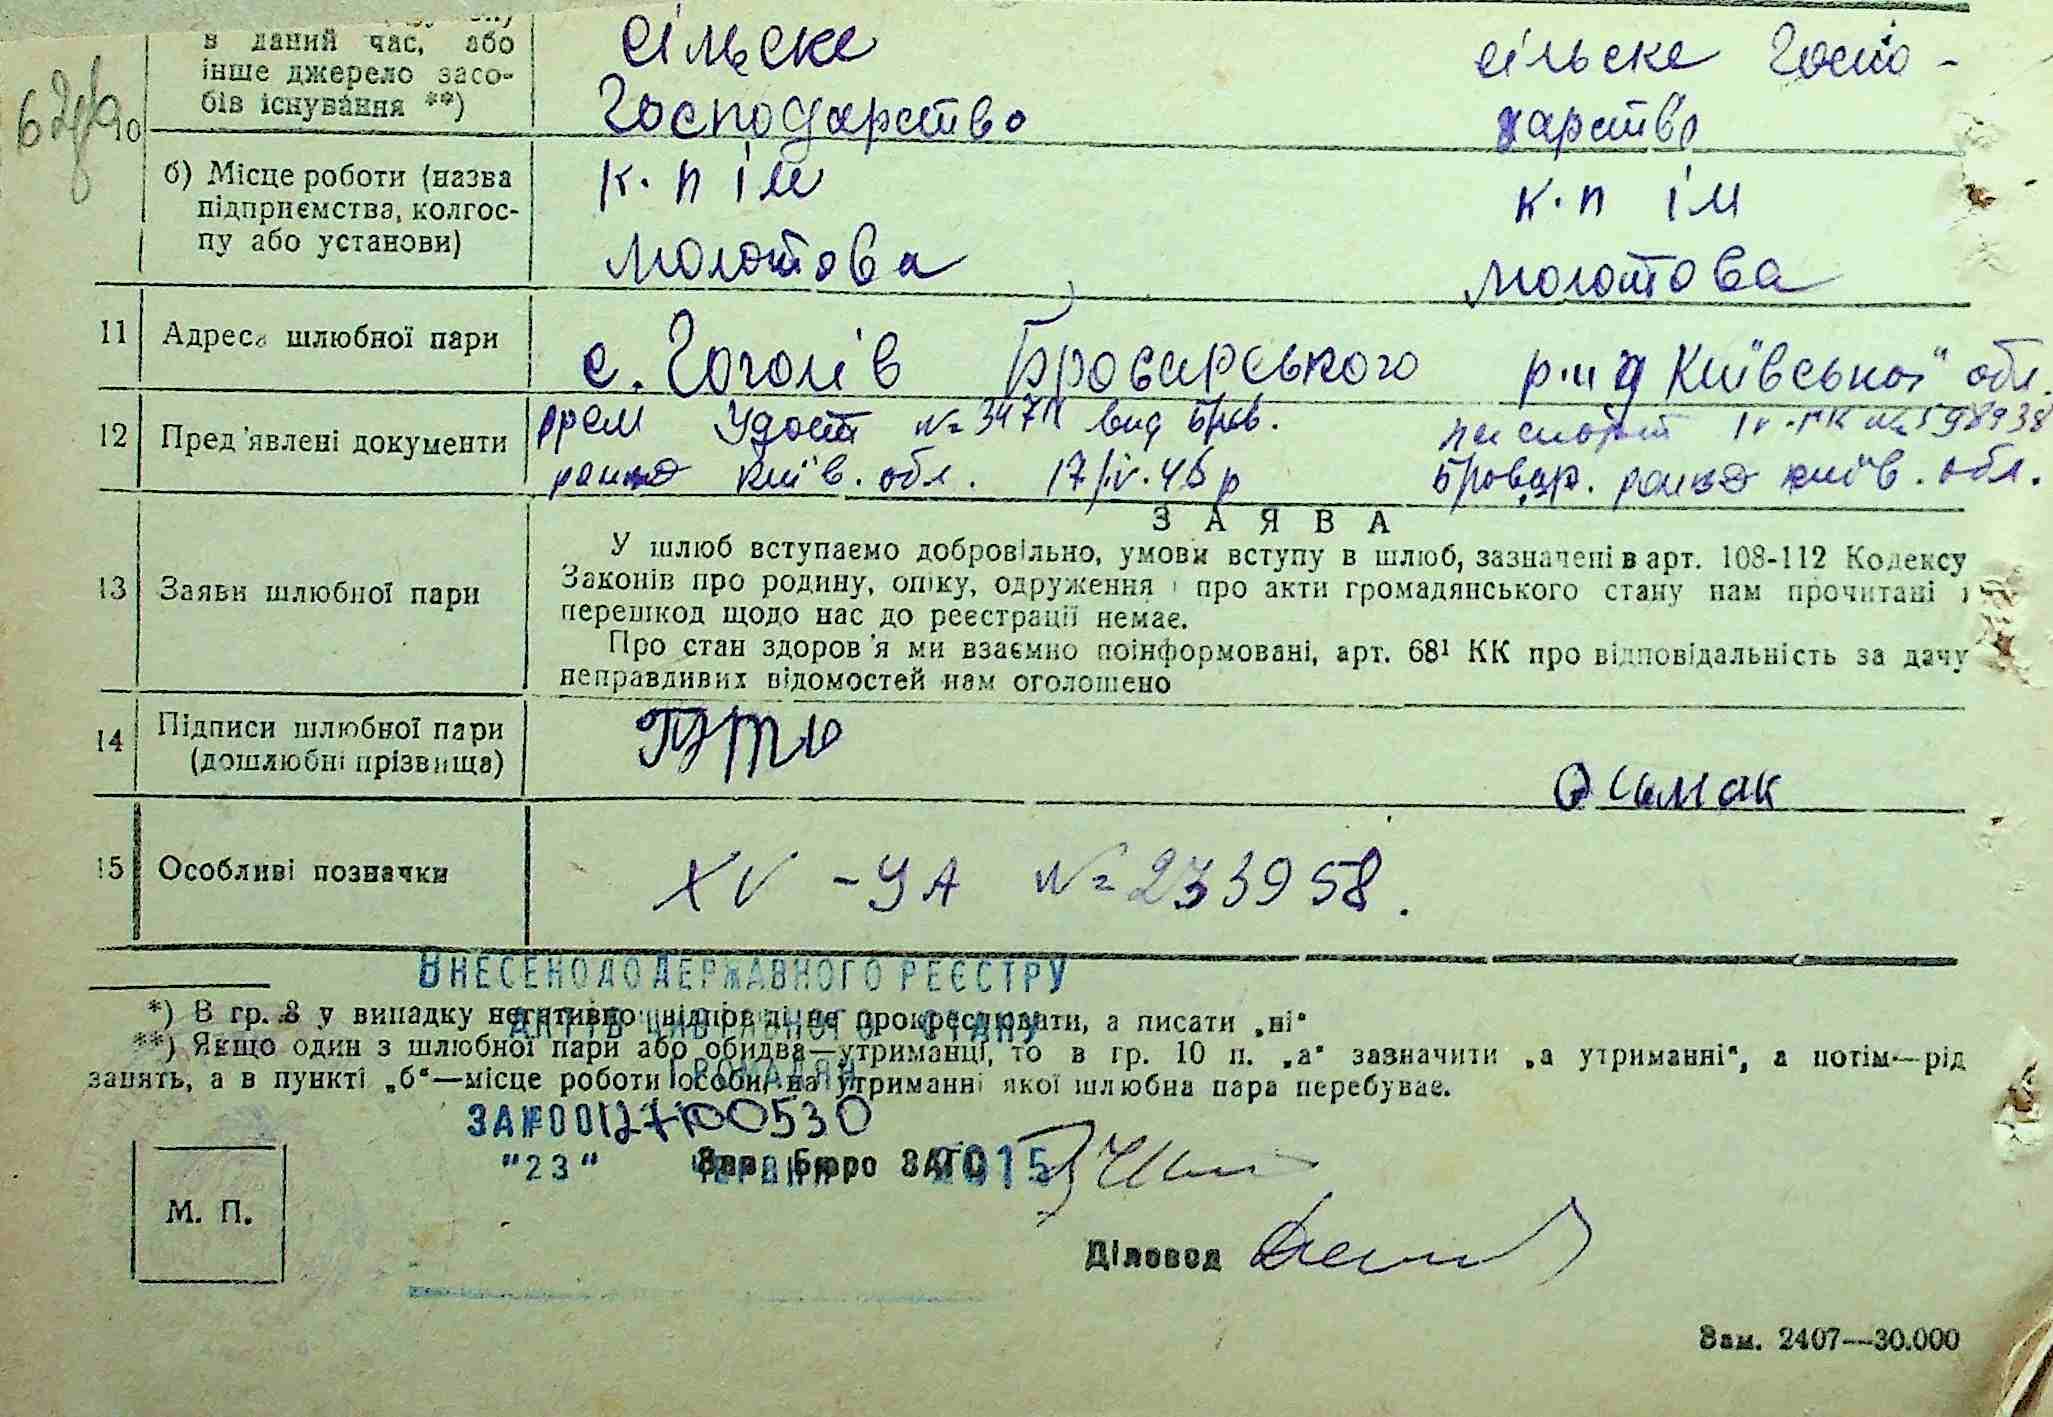 в даний час, або
інше джерело засо-
бів існування **)
сільске
Господарство
сільске Госпо-
дарство
10
б) Місце роботи (назва
підприємства, колгос-
пу або установи)
к.п ім
молотова
к.п ім
молотова
11 Адреса шлюбної пари
с. Гоголів Броварського р-ну Київської обл.
12 Пред'явлені документи
врем Удост № 347 вид Бров. паспорт № 598938
Київ. обл. 17/IV.46 р Бровар. Київ. обл.
ЗАЯВА
13 Заяви шлюбної пари
У шлюб вступаємо добровільно, умови вступу в шлюб, зазначені в арт. 108-112 Кодексу
Законів про родину, опіку, одруження і про акти громадянського стану нам прочитані і
перешкод щодо нас до реєстрації немає.
Про стан здоров'я ми взаємно поінформовані, арт. 68¹ КК про відповідальність за дачу
неправдивих відомостей нам оголошено
14 Підписи шлюбної пари
(дошлюбні прізвища)
Осьмак
15 Особливі позначки
XV -УА № 233958.
ВНЕСЕНО ДО ДЕРЖАВНОГО РЕЄСТРУ
АКТІВ ЦИВІЛЬНОГО СТАНУ
ГРОМАДЯН
*) В гр. 8 у випадку негативної відповіді не прокреслювати, а писати „ні"
**) Якщо один з шлюбної пари або обидва—утриманці, то в гр. 10 п. „а" зазначити „а утриманні", а потім—рід
занять, а в пункті „б"—місце роботи особи, на утриманні якої шлюбна пара перебуває.
ЗА №00127100530
"23" червня 2015
Зав. Бюро ЗАГС
М. П.
Діловод
Зам. 2407—30.000